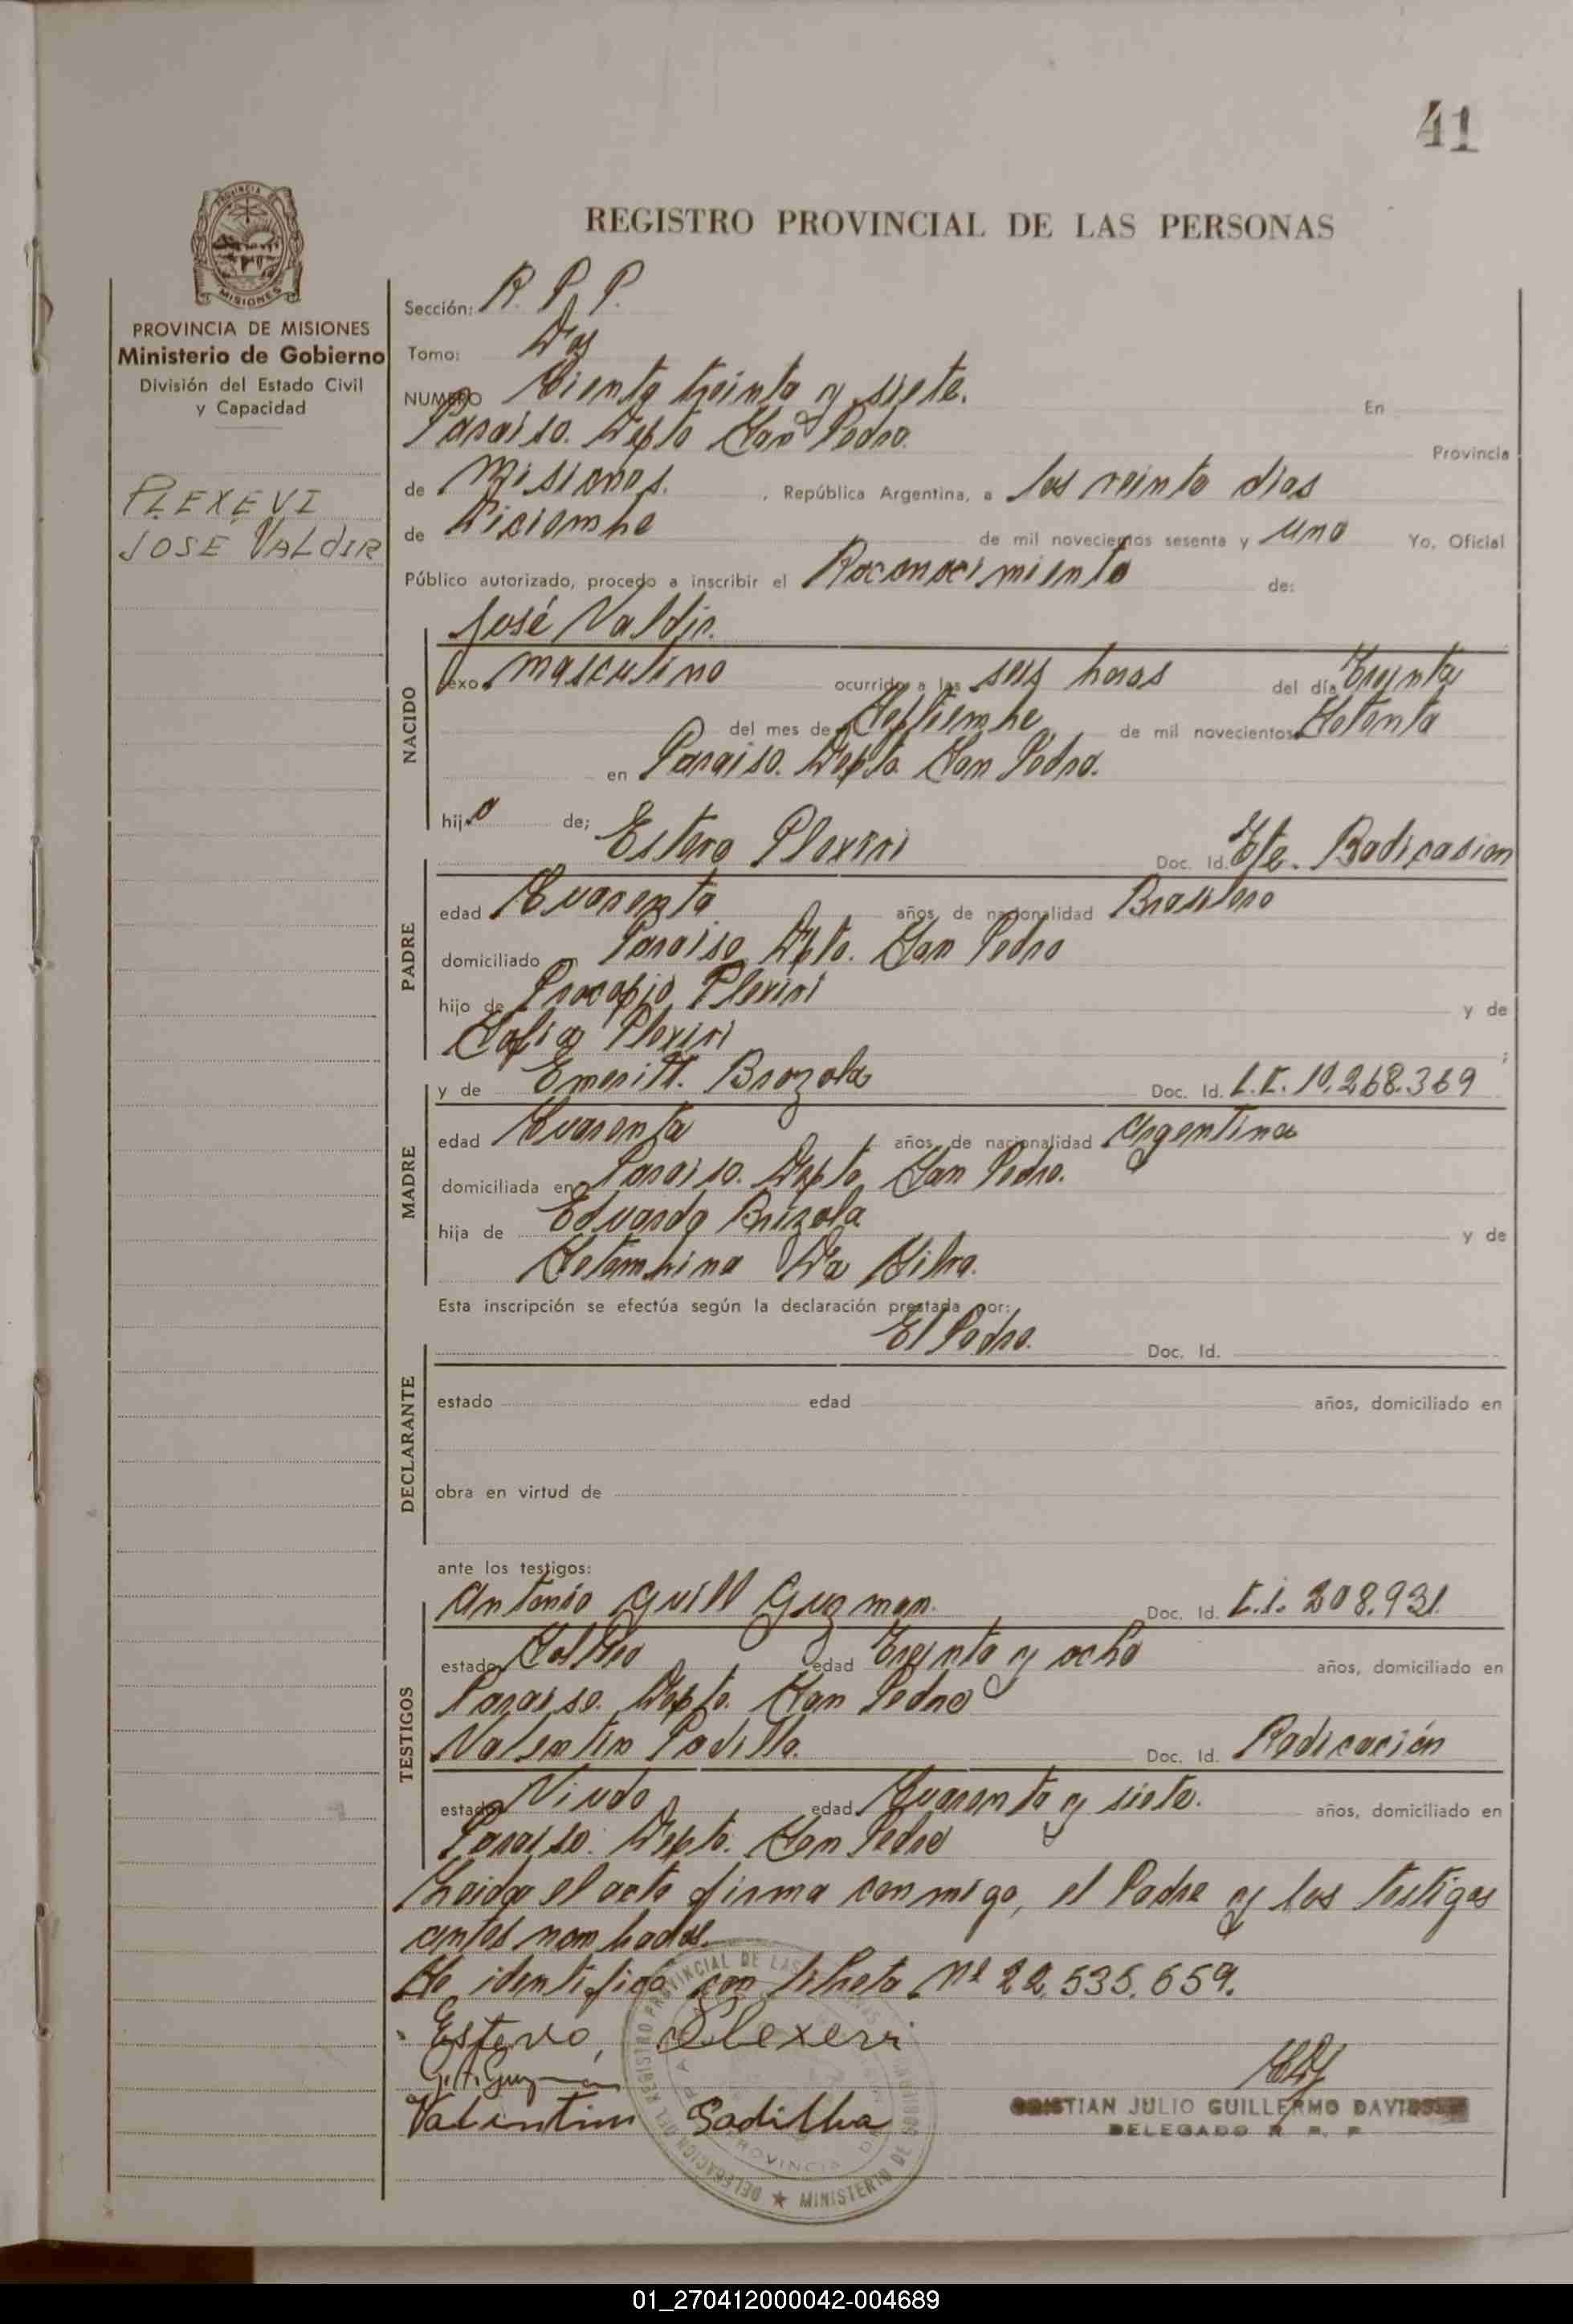 41
REGISTRO PROVINCIAL DE LAS PERSONAS
PROVINCIA DE MISIONES
Ministerio de Gobierno
División del Estado Civil
y Capacidad
PLEXEVI
JOSE VALDIR
Sección: R. P. P.
Tomo: Dos
NUMERO Ciento treinta y siete. En
Paraiso. Depto San Pedro. Provincia
de Misiones. , República Argentina, a los veinte dias
de Diciembre de mil novecientos sesenta y uno Yo, Oficial
Público autorizado, procedo a inscribir el Reconocimiento de:
José Valdir.
NACIDO
sexo masculino ocurrido a las seis horas del día Treinta
del mes de Septiembre de mil novecientos Setenta
en Paraiso. Depto. San Pedro.
hijo de;
PADRE
Estevo Plexivi Doc. Id. Cte. Radicasion
edad Cuarenta años, de nacionalidad Brasilero
domiciliado en Paraiso Depto. San Pedro
hijo de Procopio Plexivi y de
Sofia Plexivi ;
MADRE
y de Emerita Brozola Doc. Id. L.C. 10.268.369
edad Cuarenta años, de nacionalidad Argentina
domiciliada en Paraiso. Depto San Pedro.
hija de Eduardo Brizola y de
Setembrina Da Silva.
Esta inscripción se efectúa según la declaración prestada por:
DECLARANTE
El Padre. Doc. Id.
estado edad años, domiciliado en
obra en virtud de
ante los testigos:
TESTIGOS
Antonio Guill Guzman. Doc. Id. C.I. 208.931.
estado Soltero edad Treinta y ocho años, domiciliado en
Paraiso. Depto. San Pedro
Valentin Padilla. Doc. Id. Radicación
estado Viudo edad Cuarenta y siete. años, domiciliado en
Paraiso. Depto. San Pedro
Leida el acta firma conmigo, el Padre y los testigos
antes nombrados.
Se identifica con libreta Nº 22.535.659.
Estevo, Plexevi
G. A. Guzmán
Valentin Padilha
CRISTIAN JULIO GUILLERMO
DELEGADO R. P. P
DELEGACION DEL REGISTRO PROVINCIAL DE LAS
★ MINISTERIO DE GOBIERNO
PROVINCIA DE
01_270412000042-004689